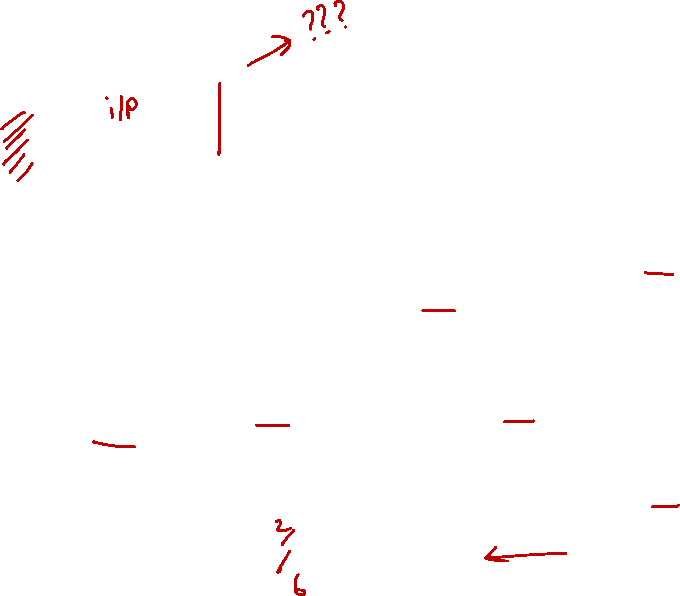 ???
i/p
2/6